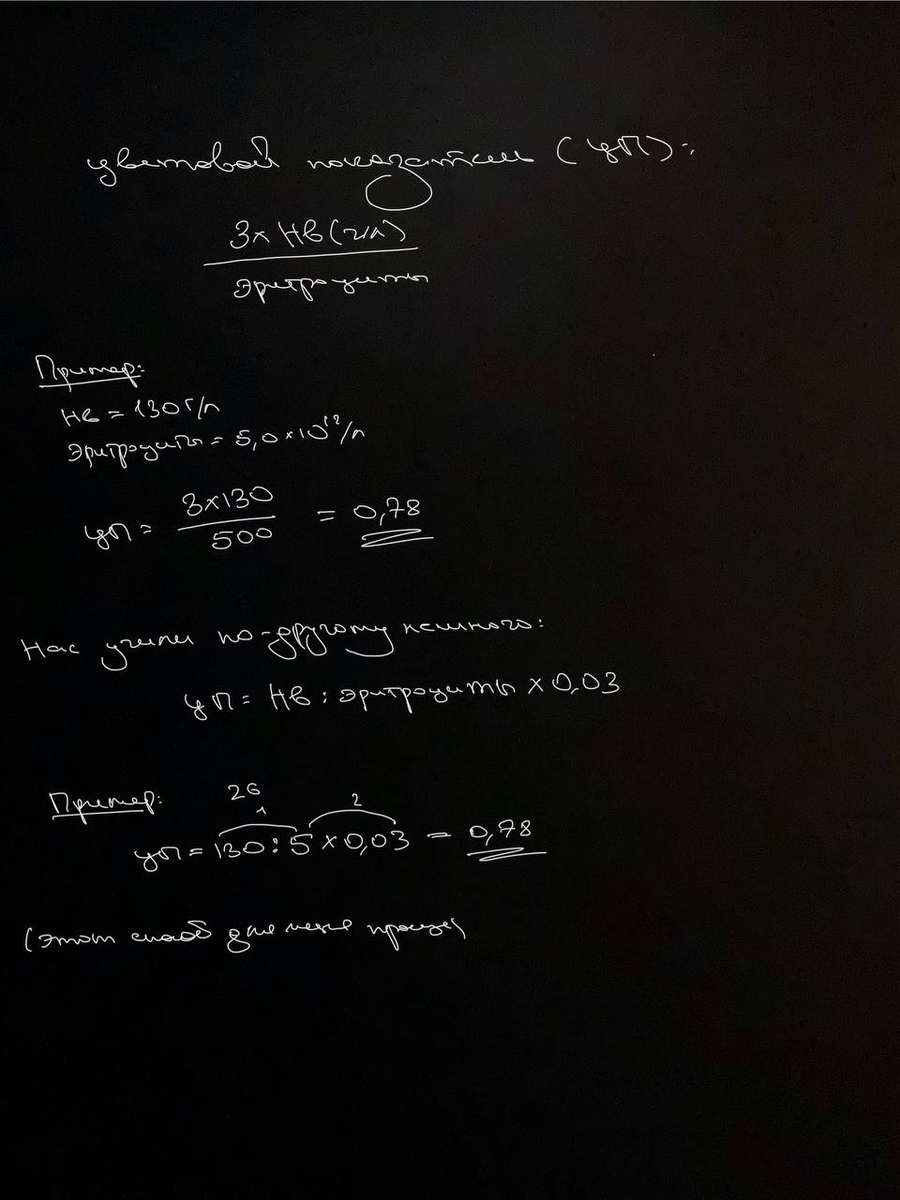 цветовой показатель (ЦП):
3 x Hb (г/л)
эритроциты
Пример:
Hb = 130 г/л
эритроциты = 5,0 × 10¹²/л
ЦП = 3×130 / 500 = 0,78
Нас учили по-другому немного:
ЦП = Hb : эритроциты × 0,03
Пример:
26
1 2
ЦП = 130 : 5 × 0,03 = 0,78
(этот способ для меня проще)